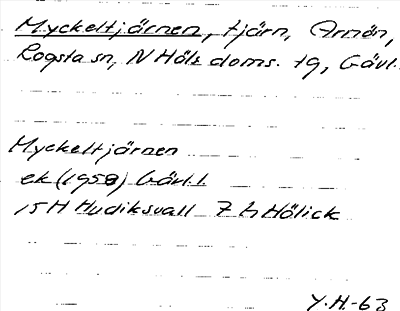 Myckeltjärnen, tjärn, Arnön,
Rogsta sn, N Häls doms. tg, Gävl.
Myckeltjärnen
ek (1958) Gävl. l
15 H Hudiksvall 7 h Hölick
Y.H.-63